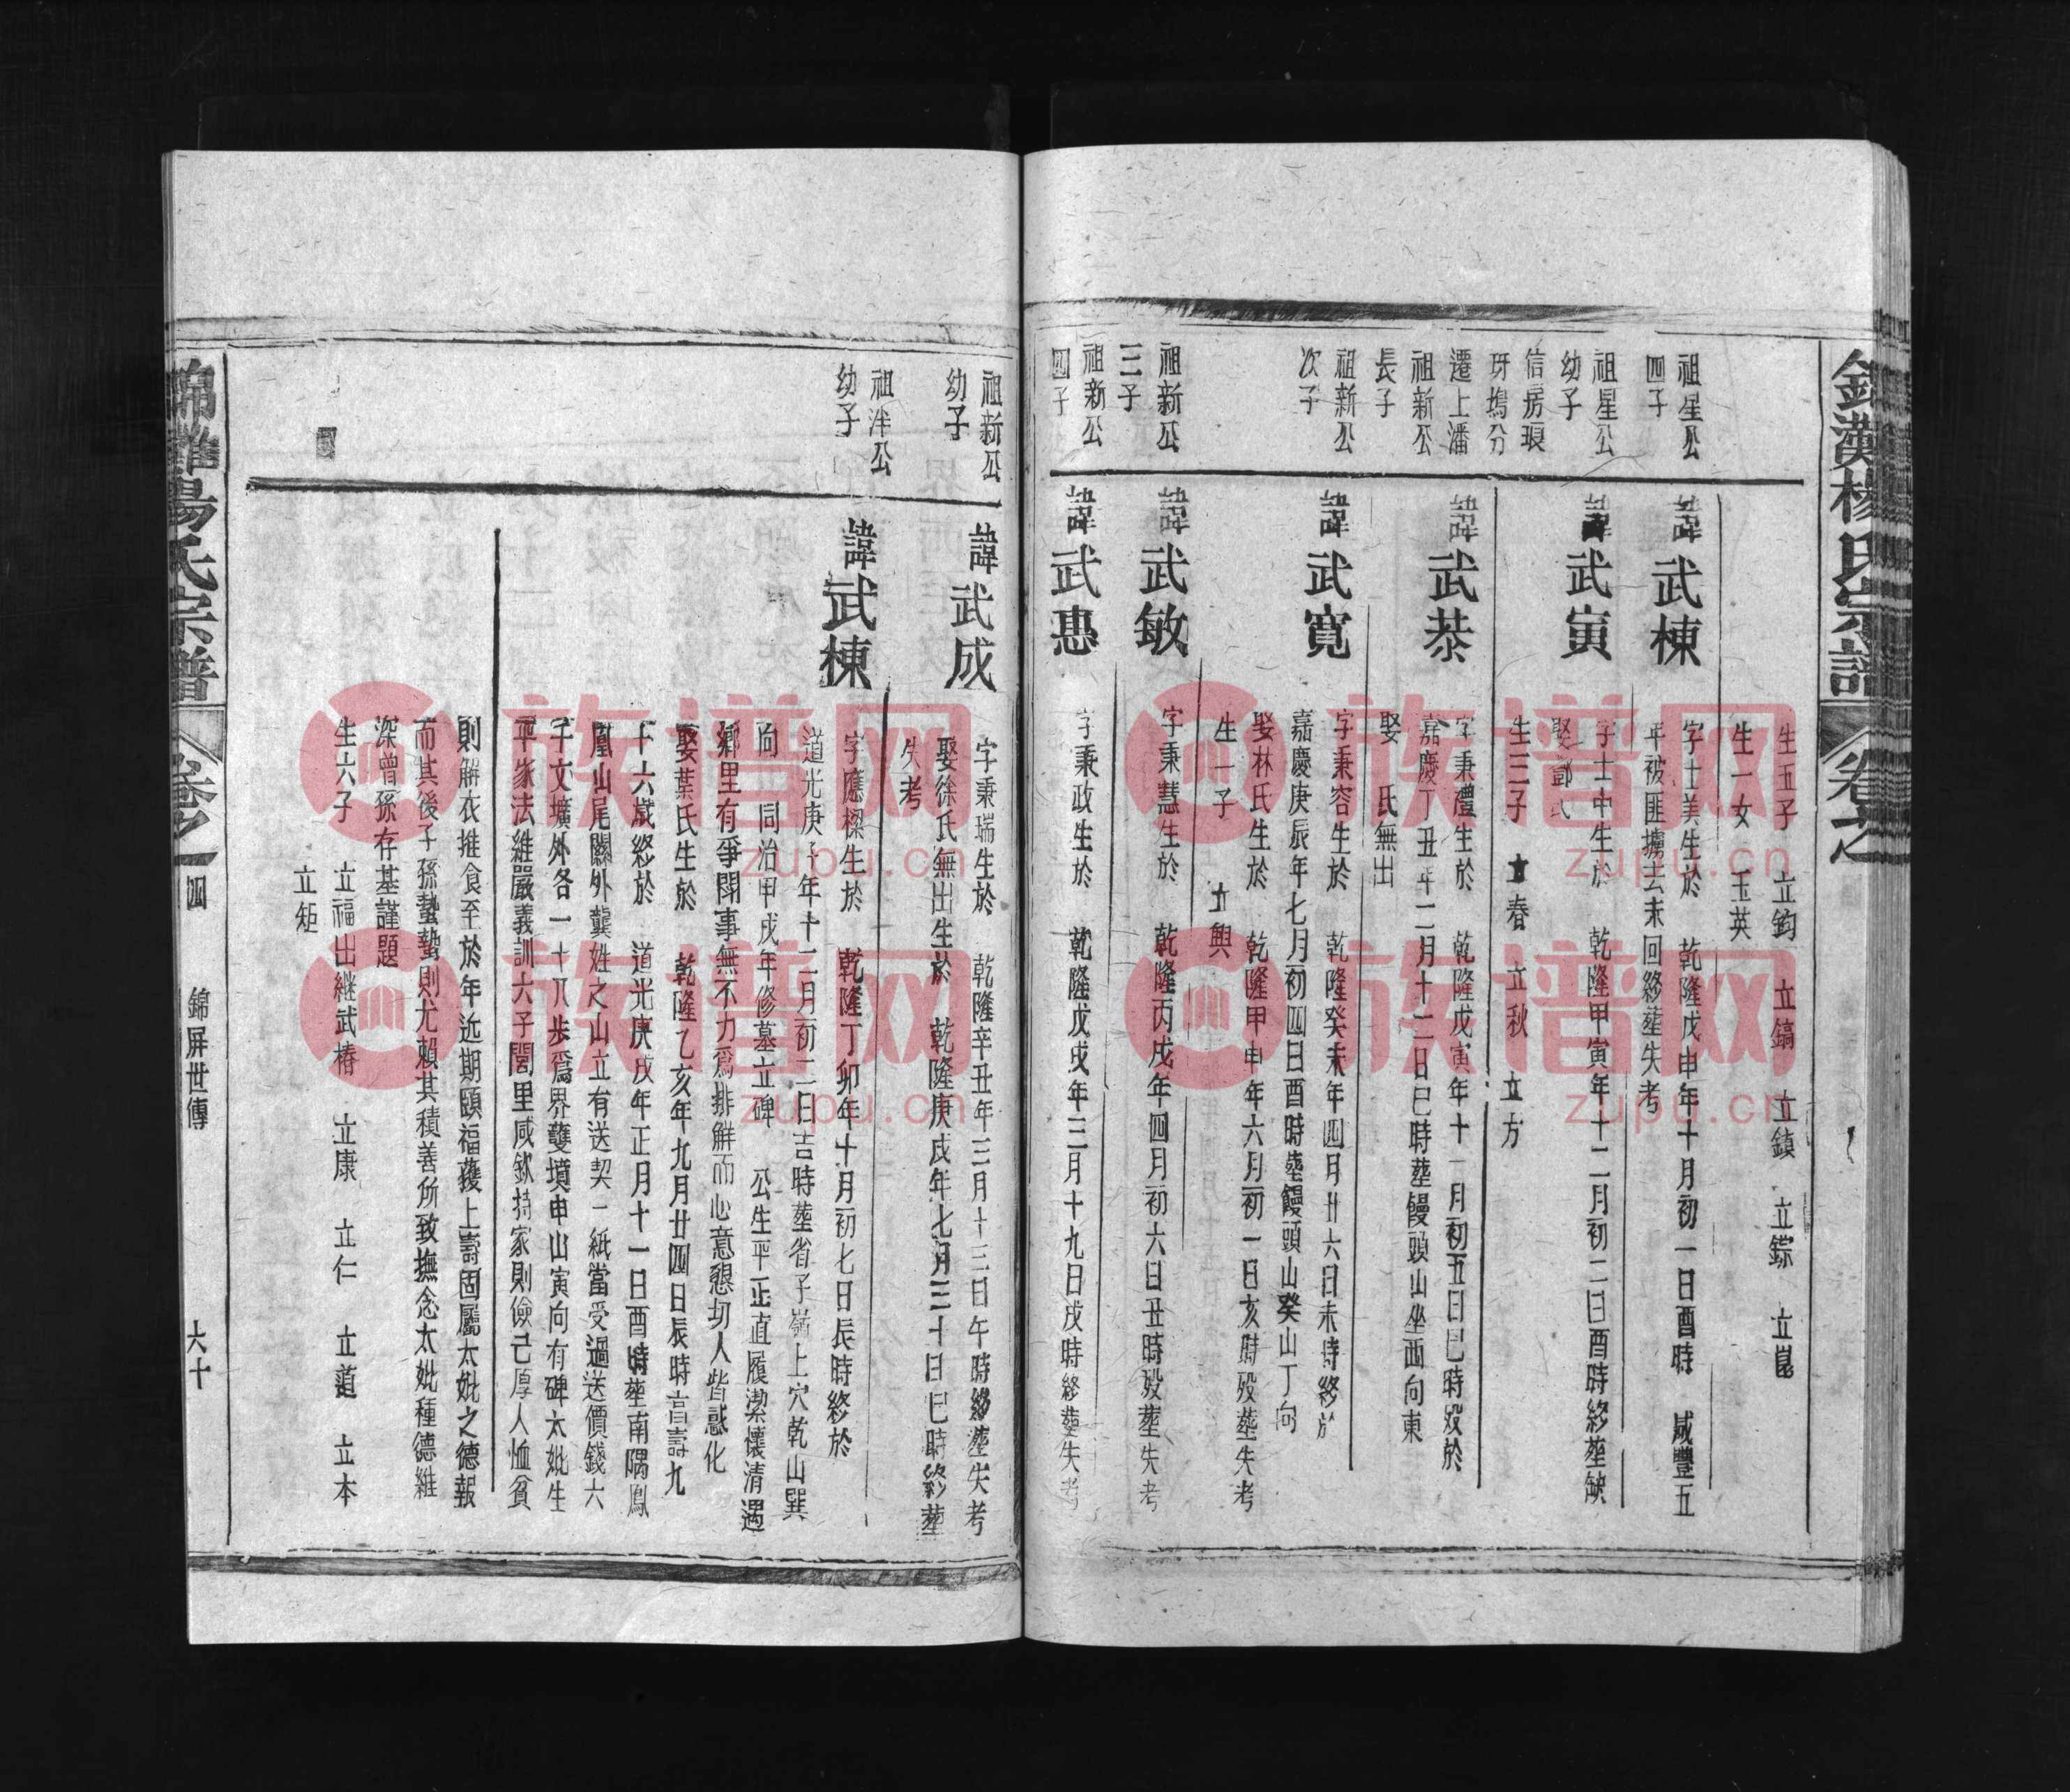 楊氏宗譜
卷之
生五子　立鈞　立鎬　立鎮　立錝　立崑
生一女　玉英
祖星公
四子
諱武棟
字士美生於　乾隆戊申年十月初一日酉時　咸豐五
年被匪擄去未回終塟失考
祖星公
幼子
諱武寅
字士中生於　乾隆甲寅年十二月初二日酉時終塟缺
娶鄧氏
生三子　立春　立秋　立方
信房琅
玡塢分
遷上潘
祖新公
長子
諱武恭
字秉禮生於　乾隆戊寅年十一月初五日巳時歿於
嘉慶丁丑年二月十二日巳時塟饅頭山坐西向東
娶　氏無出
祖新公
次子
諱武寬
字秉容生於　乾隆癸未年四月廿六日未時終於
嘉慶庚辰年七月初四日酉時塟饅頭山癸山丁向
娶林氏生於　乾隆甲申年六月初一日亥時歿塟失考
生一子　立興
祖新公
三子
諱武敏
字秉慧生於　乾隆丙戌年四月初六日丑時歿塟失考
祖新公
四子
諱武惠
字秉政生於　乾隆戊戌年三月十九日戌時終塟失考
祖新公
幼子
諱武成
字秉瑞生於　乾隆辛丑年三月十三日午時終塟失考
娶徐氏無出生於　乾隆庚戌年七月三十日巳時終塟
失考
祖泮公
幼子
諱武棟
字應樑生於　乾隆丁卯年十月初七日辰時終於
道光庚子年十二月初二日吉時塟省子嶺上穴乾山巽
向　同治甲戌年修墓立碑　公生平正直履潔懷清遇
鄉里有爭鬧事無不力為排解而心意懇切人皆感化
娶葉氏生於　乾隆乙亥年九月廿四日辰時享壽九
十六歲終於　道光庚戌年正月十一日酉時塟南隅鳳
凰山尾關外龔姓之山立有送契一紙當受過送價錢六
千文壙外各一十八步爲界雙墳申山寅向有碑太妣生
平家法維嚴義訓六子閭里咸欽持家則儉己厚人恤貧
則解衣推食至於年近期頤福獲上壽固屬太妣之德報
而其後子孫蟄蟄則尤賴其積善所致撫念太妣種德維
深曾孫存基謹題
生六子　立福出継武椿　立康　立仁　立道　立本
立矩
楊氏宗譜
卷之一四
錦屏世傳
六十
族谱网
zupu.cn
族谱网
zupu.cn
族谱网
zupu.cn
族谱网
zupu.cn